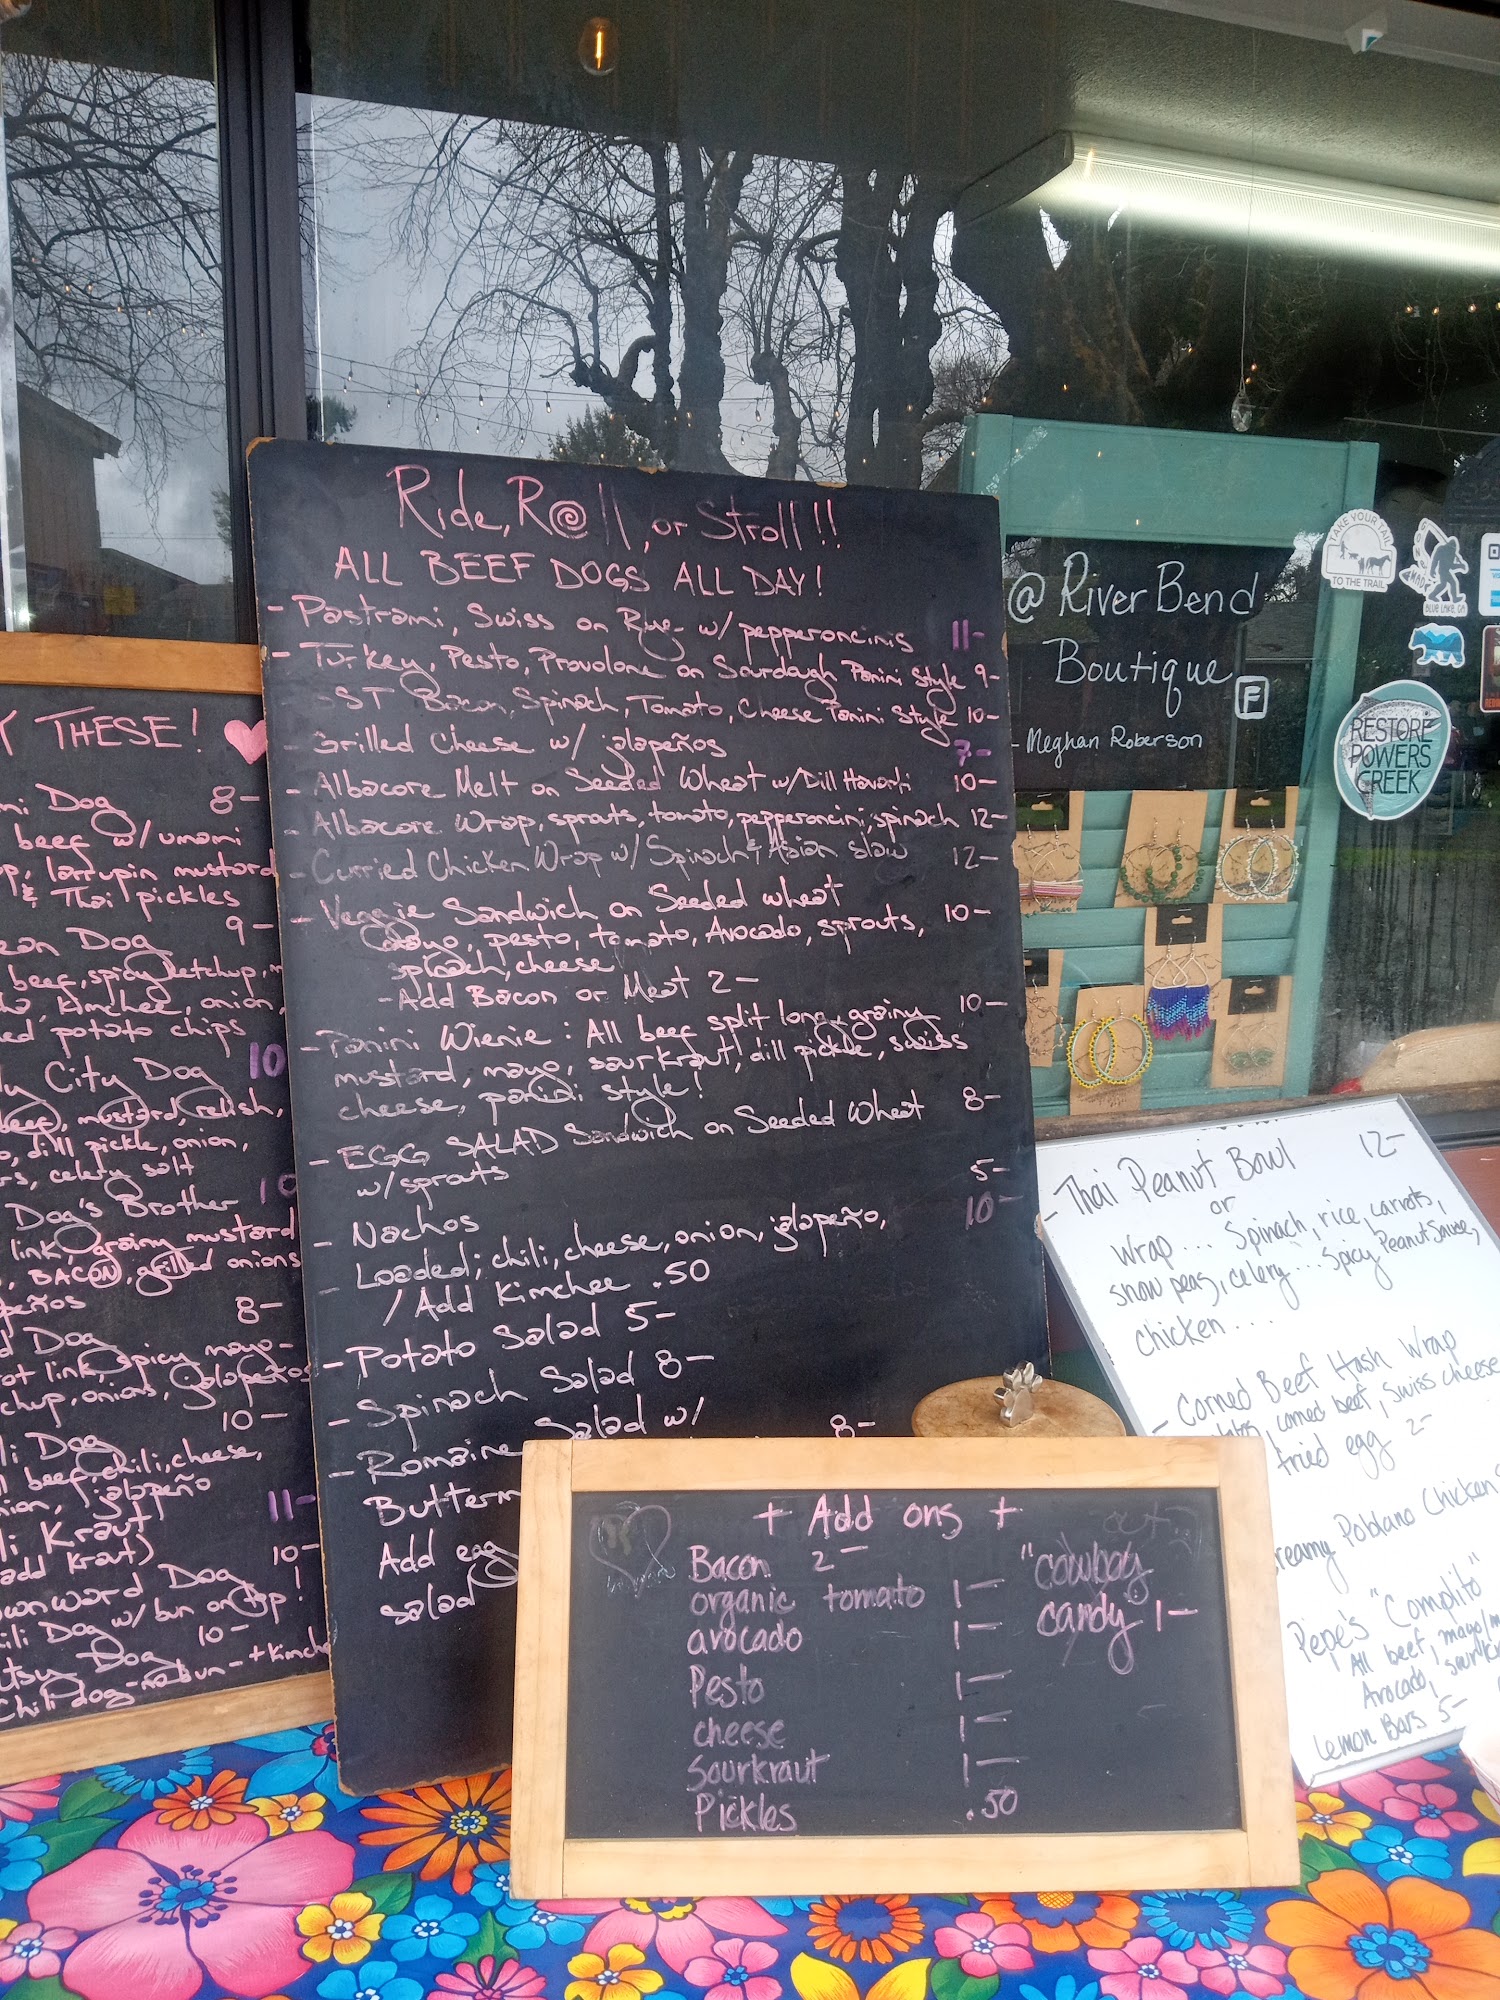 Ride, Roll, or Stroll!!
ALL BEEF DOGS ALL DAY!
- Pastrami, Swiss on Rye w/ pepperoncinis 11-
- Turkey, Pesto, Provolone on Sourdough Panini Style 9-
Bacon, Spinach, Tomato, Cheese Panini Style 10-
- Grilled Cheese w/ jalapeños 7-
- Albacore Melt on Seeded Wheat w/ Dill Havarti 10-
- Albacore Wrap, sprouts, tomato, pepperoncini, spinach 12-
- Curried Chicken Wrap w/ Spinach & Asian slaw 12-
- Veggie Sandwich on Seeded wheat
mayo, pesto, tomato, Avocado, sprouts, 10-
spinach, cheese
- Add Bacon or Meat 2-
- Panini Wienie: All beef split long, grainy 10-
mustard, mayo, sourkraut, dill pickle, swiss
cheese, panini style!
- EGG SALAD Sandwich on Seeded Wheat 8-
w/ sprouts
- Nachos 5-
- Loaded; chili, cheese, onion, jalapeño, 10-
/ Add Kimchee .50
- Potato Salad 5-
- Spinach Salad 8-
- Romaine Salad w/ 8-
Butterm
Add egg
salad
THESE!
Dog 8-
beef w/ umami
larrupin mustard
& Thai pickles
Dog 9-
beef, spicy ketchup,
kimchee, onion,
potato chips
City Dog 10
beef, mustard, relish,
dill pickle, onion,
celery salt
Dog's Brother 10
link, grainy mustard
BACON, grilled onions
8-
Dog
link, spicy mayo-
onions, jalapeños
10-
Dog
beef, chili, cheese,
onion, jalapeño
Kraut 11-
add kraut)
Dog 10-
Dog w/ bun on top!
10-
Dog
Chili dog - no bun - + Kimche
+ Add ons +
Bacon 2-
organic tomato 1-
avocado 1-
Pesto 1-
cheese 1-
Sourkraut 1-
Pickles .50
out
"cowboy
candy" 1-
@ River Bend
Boutique
- Meghan Roberson
TAKE YOUR TAIL
TO THE TRAIL
BLUE LAKE, CA
RESTORE
POWERS
CREEK
- Thai Peanut Bowl 12-
or
Wrap... Spinach, rice, carrots,
snow peas, celery... Spicy Peanut Sauce,
chicken....
- Corned Beef Hash Wrap
corned beef, Swiss cheese
fried egg 2-
Creamy Poblano Chicken
Pepe's "Complito"
All beef, mayo/
Avocado,
Lemon Bars 5-